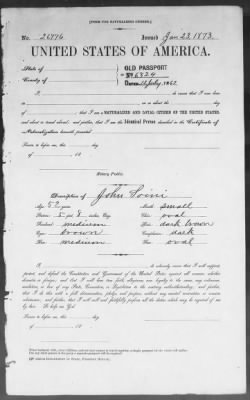 [FORM FOR NATURALIZED CITIZEN.]
No. 26976 Issued Jan 23. 1873.
UNITED STATES OF AMERICA.
State of
County of
OLD PASSPORT
No 6324
I, do swear that I was born
in on or about the day
of , that I am a NATURALIZED AND LOYAL CITIZEN OF THE UNITED STATES,
and about to travel abroad; and further, that I am the Identical Person described in the Certificate of
Naturalization herewith presented.
Sworn to before me, this day
of 18
Notary Public.
Description of John Loini
Age: 52 years Mouth: small
Stature: 5 feet 8 inches, Eng. Chin: oval
Forehead: medium Hair: dark brown
Eyes: brown Complexion: dark
Nose: medium Face: oval
I, do solemnly swear that I will support,
protect, and defend the Constitution and Government of the United States against all enemies, whether
domestic or foreign; and that I will bear true faith, allegiance, and loyalty to the same, any ordinance,
resolution, or law of any State, Convention, or Legislature to the contrary notwithstanding; and further,
that I do this with a full determination, pledge, and purpose, without any mental reservation or evasion
whatsoever; and further, that I will well and faithfully perform all the duties which may be required of me
by law: So help me God.
Sworn to before me, this day
of 18